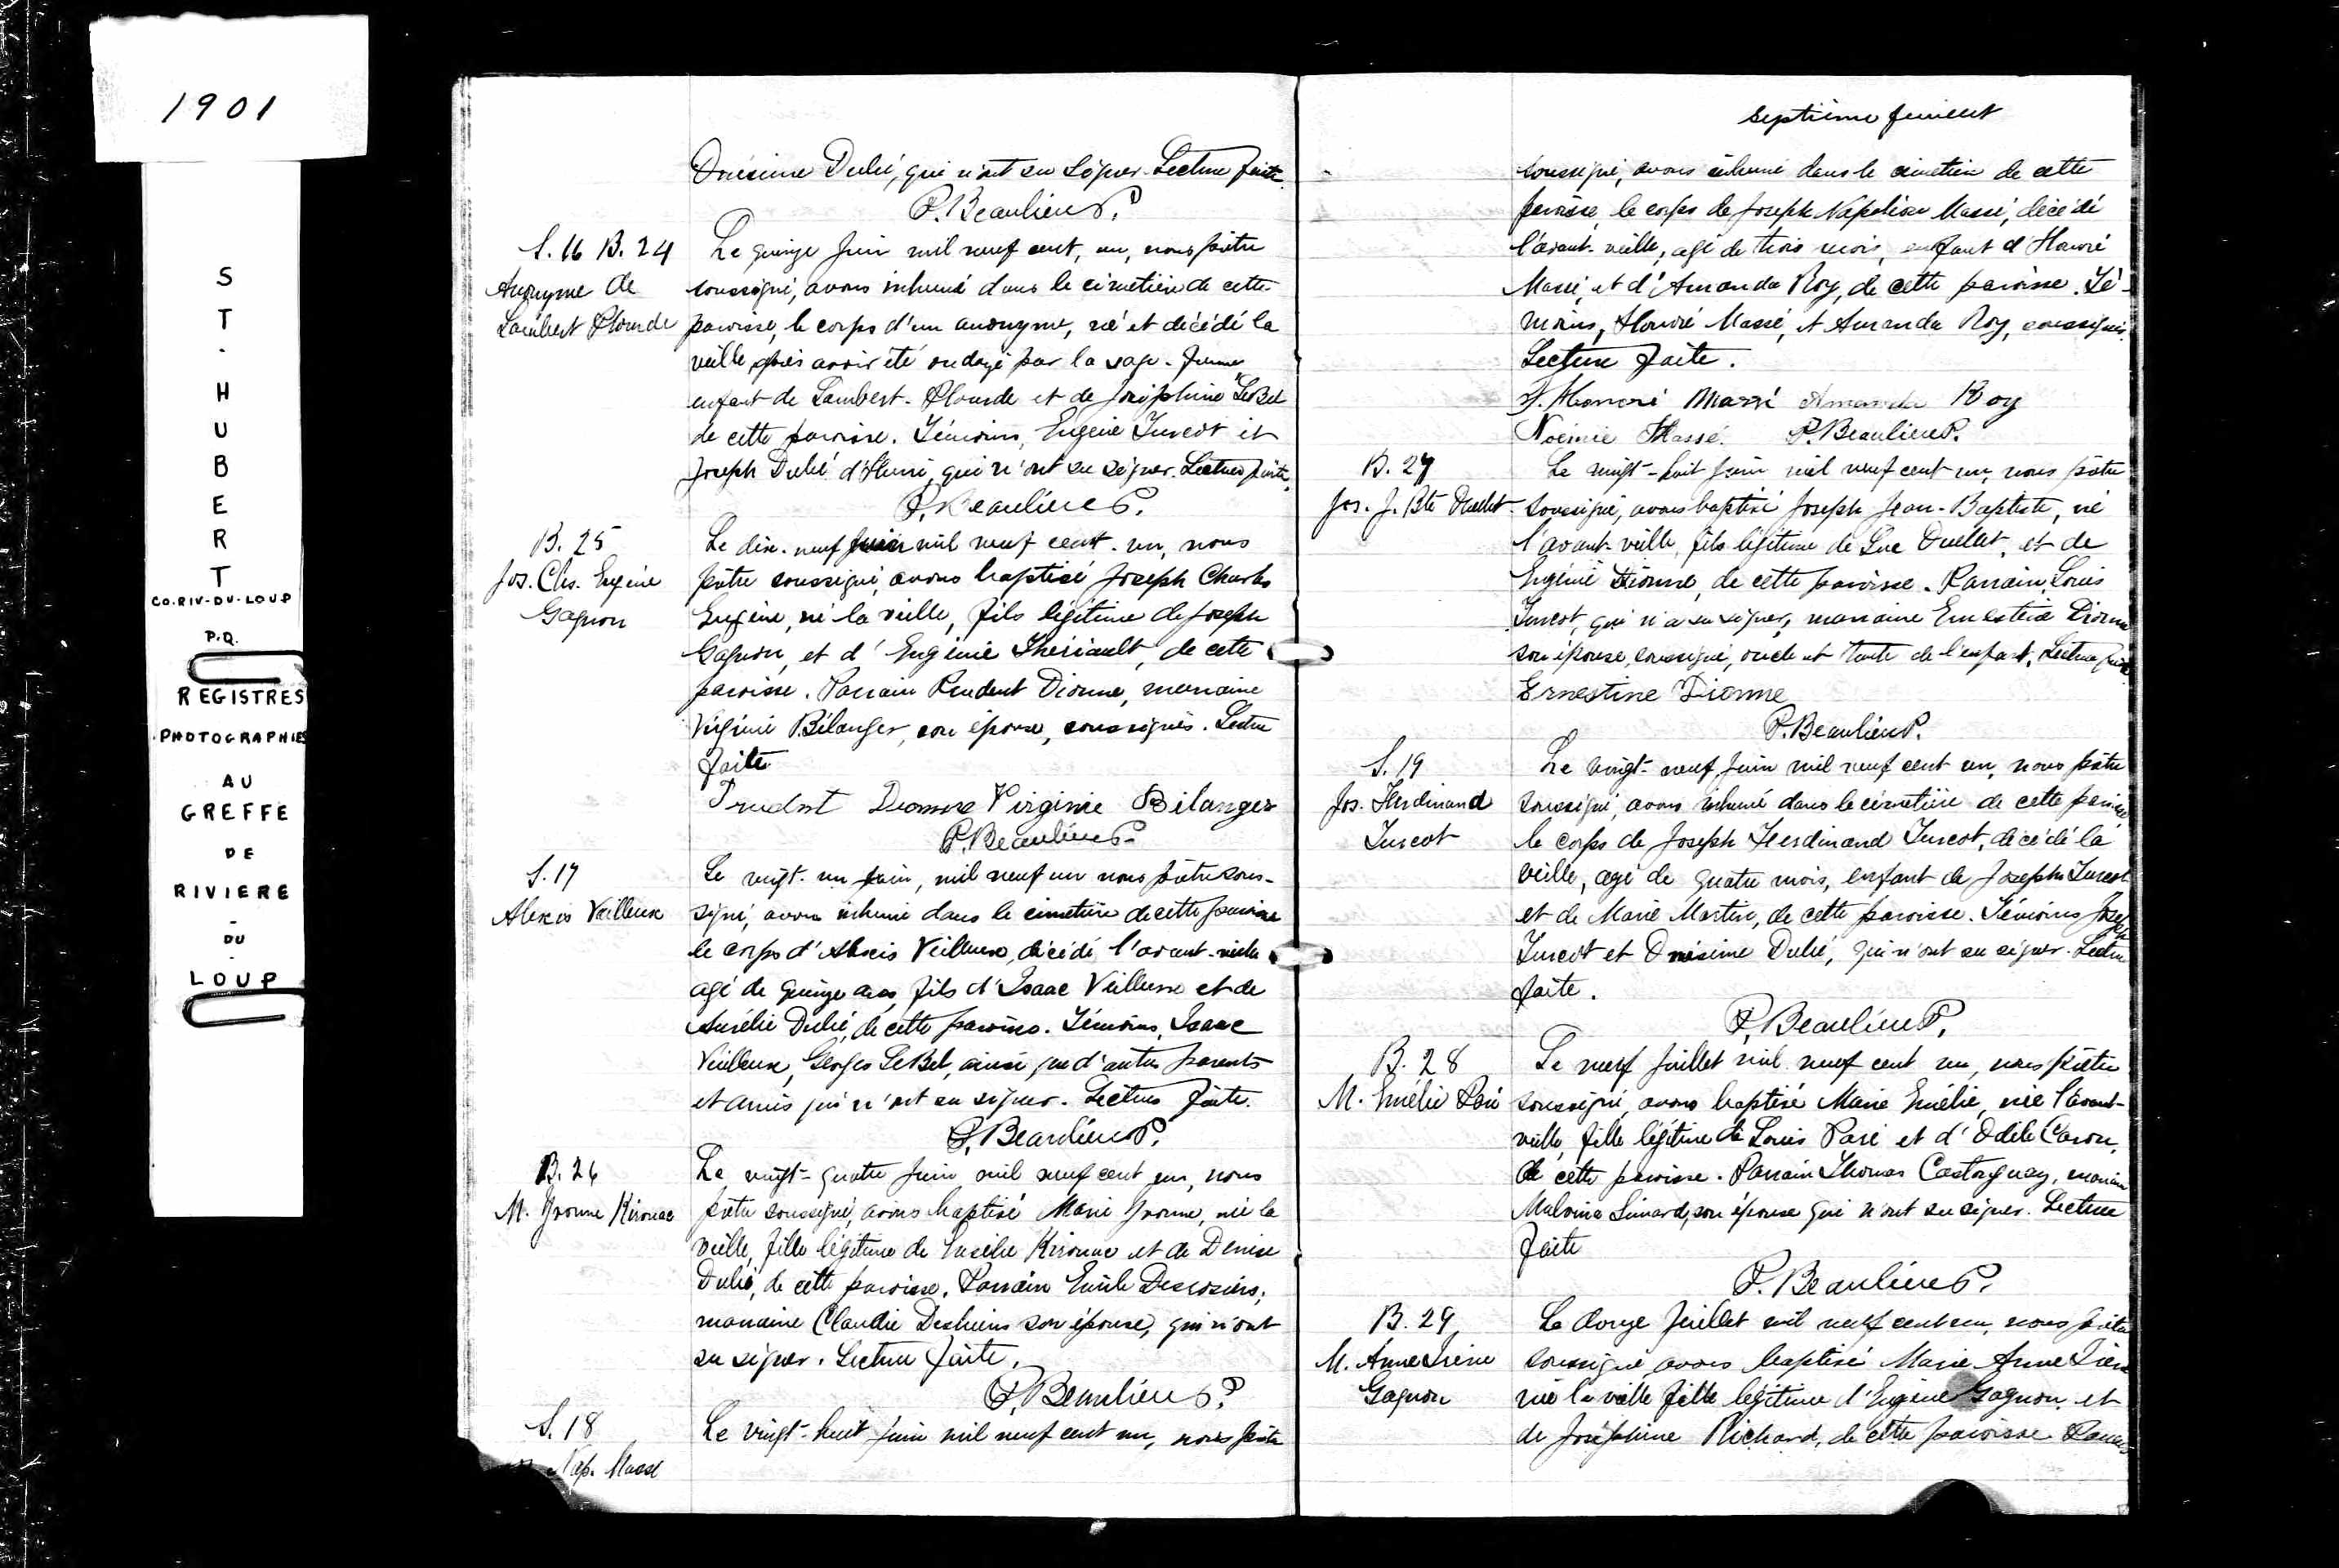 1901
ST. HUBERT
CO. RIV-DU-LOUP
P.Q.
REGISTRES
PHOTOGRAPHIES
AU
GREFFE
DE
RIVIERE
-
DU
-
LOUP
Onésime Dubé, qui n'ont su signer. Lecture faite.
P. Beaulieu P.
S. 16 B. 24
Anonyme de
Lambert Plourde
Le quinze Juin mil neuf cent, un, nous prêtre
soussigné, avons inhumé dans le cimetière de cette
paroisse, le corps d'un anonyme, né et décédé la
veille après avoir été ondoyé par la sage-femme
enfant de Lambert Plourde et de Joséphine LeBel
de cette paroisse. Témoins, Eugène Turcot et
Joseph Dubé d'Henri, qui n'ont su signer. Lecture faite.
P. Beaulieu P.
B. 25
Jos. Chs. Eugène
Gagnon
Le dix-neuf juin mil neuf cent-un, nous
prêtre soussigné, avons baptisé Joseph Charles
Eugène, né la veille, fils légitime de Joseph
Gagnon, et d'Eugénie Thériault, de cette
paroisse. Parrain Prudent Dionne, marraine
Virginie Bélanger, son épouse, soussignés. Lecture
faite
Prudent Dionne Virginie Bélanger
P. Beaulieu P.
S. 17
Alexis Veilleux
Le vingt-un juin, mil neuf un nous prêtre sous-
signé, avons inhumé dans le cimetière de cette paroisse
le corps d'Alexis Veilleux, décédé l'avant-veille
agé de quinze ans, fils d'Isaac Veilleux et de
Aurélie Dubé, de cette paroisse. Témoins, Isaac
Veilleux, Georges LeBel, ainsi que d'autres parents
et amis qui n'ont su signer. Lecture faite.
P. Beaulieu P.
B. 26
M. Yvonne Kirouac
Le vingt-quatre Juin mil neuf cent un, nous
prêtre soussigné, avons baptisé Marie Yvonne, née la
veille, fille légitime de Eusèbe Kirouac et de Denise
Dubé, de cette paroisse. Parrain Emile Desrosiers,
marraine Claudia Deshiens son épouse, qui n'ont
su signer. Lecture faite.
P. Beaulieu P.
S. 18
Nap. Massé
Le vingt-huit Juin mil neuf cent un, nous prêtre
septième feuillet
soussigné, avons inhumé dans le cimetière de cette
paroisse, le corps de Joseph Napoléon Massé, décédé
l'avant-veille, agé de trois mois, enfant d'Honoré
Massé, et d'Amanda Roy, de cette paroisse. Té-
moins, Honoré Massé, et Amanda Roy, soussignés.
Lecture faite.
Honoré Massé Amanda Roy
Noémie Massé. P. Beaulieu P.
B. 27
Jos. J. Bte Ouellet
Le vingt-huit Juin mil neuf cent un, nous prêtre
soussigné, avons baptisé Joseph Jean-Baptiste, né
l'avant-veille, fils légitime de Luc Ouellet, et de
Eugénie Dionne, de cette paroisse. Parrain, Louis
Turcot, qui n'a su signer, marraine Ernestine Dionne
son épouse, soussigné, oncle et tante de l'enfant. Lecture faite.
Ernestine Dionne
P. Beaulieu P.
S. 19
Jos. Ferdinand
Turcot
Le vingt-neuf Juin mil neuf cent un, nous prêtre
soussigné, avons inhumé dans le cimetière de cette paroisse
le corps de Joseph Ferdinand Turcot, décédé la
veille, agé de quatre mois, enfant de Joseph Turcot
et de Marie Martin, de cette paroisse. Témoins Joseph
Turcot et Onésime Dubé, qui n'ont su signer. Lecture
faite.
P. Beaulieu P.
B. 28
M. Emélie Paré
Le neuf Juillet mil neuf cent un, nous prêtre
soussigné, avons baptisé Marie Emélie, née l'avant-
veille, fille légitime de Louis Paré et d'Odile Caron,
de cette paroisse. Parrain Thomas Castonguay, marraine
Malvina Simard, son épouse qui n'ont su signer. Lecture
faite
P. Beaulieu P.
B. 29
M. Anne Irène
Gagnon
Le douze Juillet mil neuf cent un, nous prêtre
soussigné avons baptisé Marie Anne Irène
née la veille fille légitime d'Eugène Gagnon et
de Joséphine Richard, de cette paroisse. Parrain